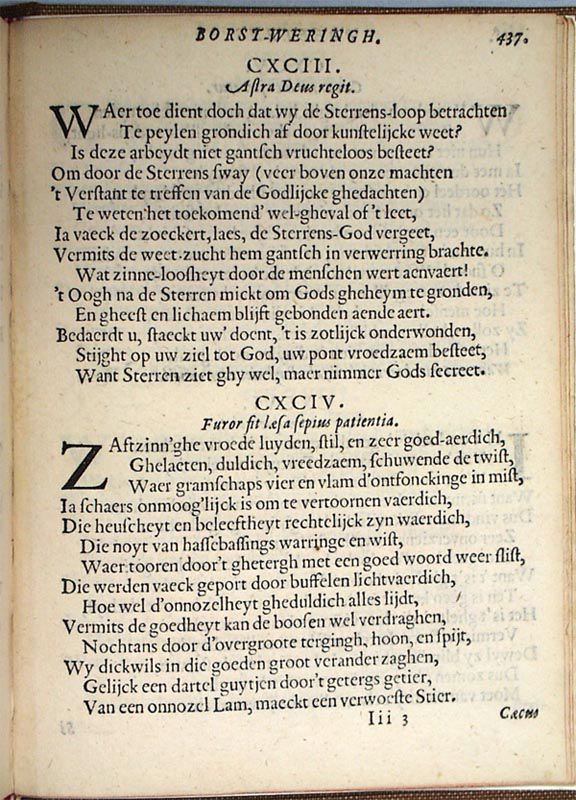 BORST-WERINGH. 437.
CXCIII.
Astra Deus regit.
WAer toe dient doch dat wy de Sterrens-loop betrachten
Te peylen grondich af door kunstelijcke weet?
Is deze arbeydt niet gantsch vruchteloos besteet?
Om door de Sterrens sway (veer boven onze machten
't Verstant te treffen van de Godlijcke ghedachten)
Te weten het toekomend' wel-gheval of 't leet,
Ia vaeck de zoeckert, laes, de Sterrens-God vergeet,
Vermits de weet-zucht hem gantsch in verwerring brachte.
Wat zinne-loosheyt door de menschen wert aenvaert!
't Oogh na de Sterren mickt om Gods gheheym te gronden,
En gheest en lichaem blijft gebonden aende aert.
Bedaerdt u, staeckt uw' doent, 't is zotlijck onderwonden,
Stijght op uw ziel tot God, uw pont vroedzaem besteet,
Want Sterren ziet ghy wel, maer nimmer Gods secreet.
CXCIV.
Furor fit læsa sepius patientia.
ZAftzinn'ghe vroede luyden, stil, en zeer goed-aerdich,
Ghelaeten, duldich, vreedzaem, schuwende de twist,
Waer gramschaps vier en vlam d'ontfonckinge in mist,
Ia schaers onmoog'lijck is om te vertoornen vaerdich,
Die heuscheyt en beleeftheyt rechtelijck zyn waerdich,
Die noyt van hassebassings warringe en wist,
Waer tooren door't ghetergh met een goed woord weer slist,
Die werden vaeck geport door buffelen lichtvaerdich,
Hoe wel d'onnozelheyt gheduldich alles lijdt,
Vermits de goedheyt kan de boosen wel verdraghen,
Nochtans door d'overgroote tergingh, hoon, en spijt,
Wy dickwils in die goeden groot verander zaghen,
Gelijck een dartel guytjen door't getergs getier,
Van een onnozel Lam, maeckt een verwoeste Stier.
Iii 3 Cæcus